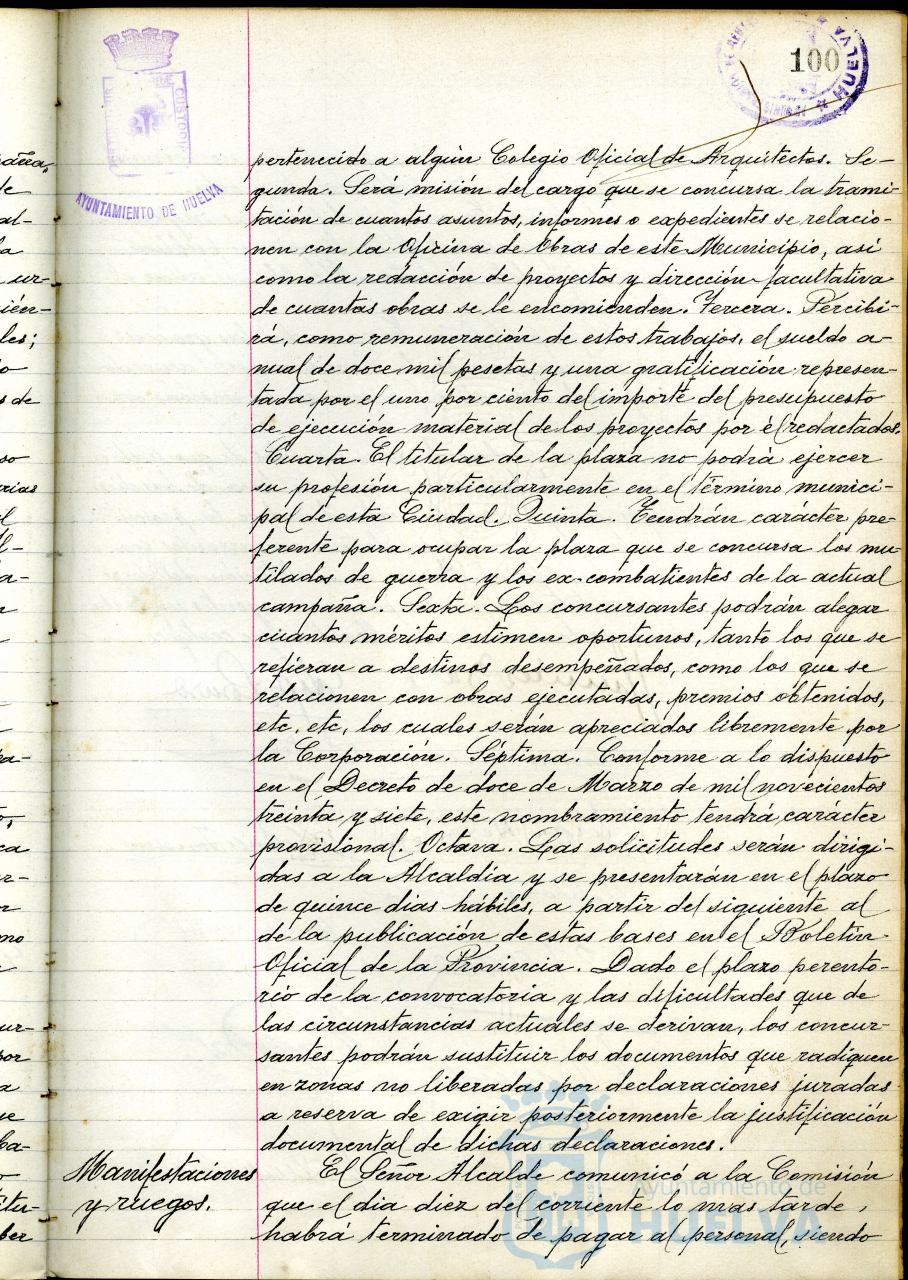 100
HUELVA
CUSTODIA
AYUNTAMIENTO DE HUELVA
pertenecido a algún Colegio Oficial de Arquitectos. Se-
gunda. Será misión del cargo que se concursa la trami-
tación de cuantos asuntos, informes o expedientes se relacio-
nen con la Oficina de Obras de este Municipio, así
como la redacción de proyectos y dirección facultativa
de cuantas obras se le encomienden. Tercera. Percibi-
rá, como remuneración de estos trabajos, el sueldo a-
nual de doce mil pesetas y una gratificación represen-
tada por el uno por ciento del importe del presupuesto
de ejecución material de los proyectos por él redactados.
Cuarta. El titular de la plaza no podrá ejercer
su profesión particularmente en el término munici-
pal de esta Ciudad. Quinta. Tendrán carácter pre-
ferente para ocupar la plaza que se concursa los mu-
tilados de guerra y los ex-combatientes de la actual
campaña. Sexta. Los concursantes podrán alegar
cuantos méritos estimen oportunos, tanto los que se
refieran a destinos desempeñados, como los que se
relacionen con obras ejecutadas, premios obtenidos,
etc, etc, los cuales serán apreciados libremente por
la Corporación. Séptima. Conforme a lo dispuesto
en el Decreto de doce de Marzo de mil novecientos
treinta y siete, este nombramiento tendrá carácter
provisional. Octava. Las solicitudes serán dirigi-
das a la Alcaldía y se presentarán en el plazo
de quince dias hábiles, a partir del siguiente al
de la publicación de estas bases en el Boletín
Oficial de la Provincia. Dado el plazo perento-
rio de la convocatoria y las dificultades que de
las circunstancias actuales se derivan, los concur-
santes podrán sustituir los documentos que radiquen
en zonas no liberadas por declaraciones juradas
a reserva de exigir posteriormente la justificación
documental de dichas declaraciones.
Manifestaciones
y ruegos.
El Señor Alcalde comunicó a la Comisión
que el dia diez del corriente lo mas tarde,
habrá terminado de pagar al personal, siendo
Ayuntamiento de
HUELVA